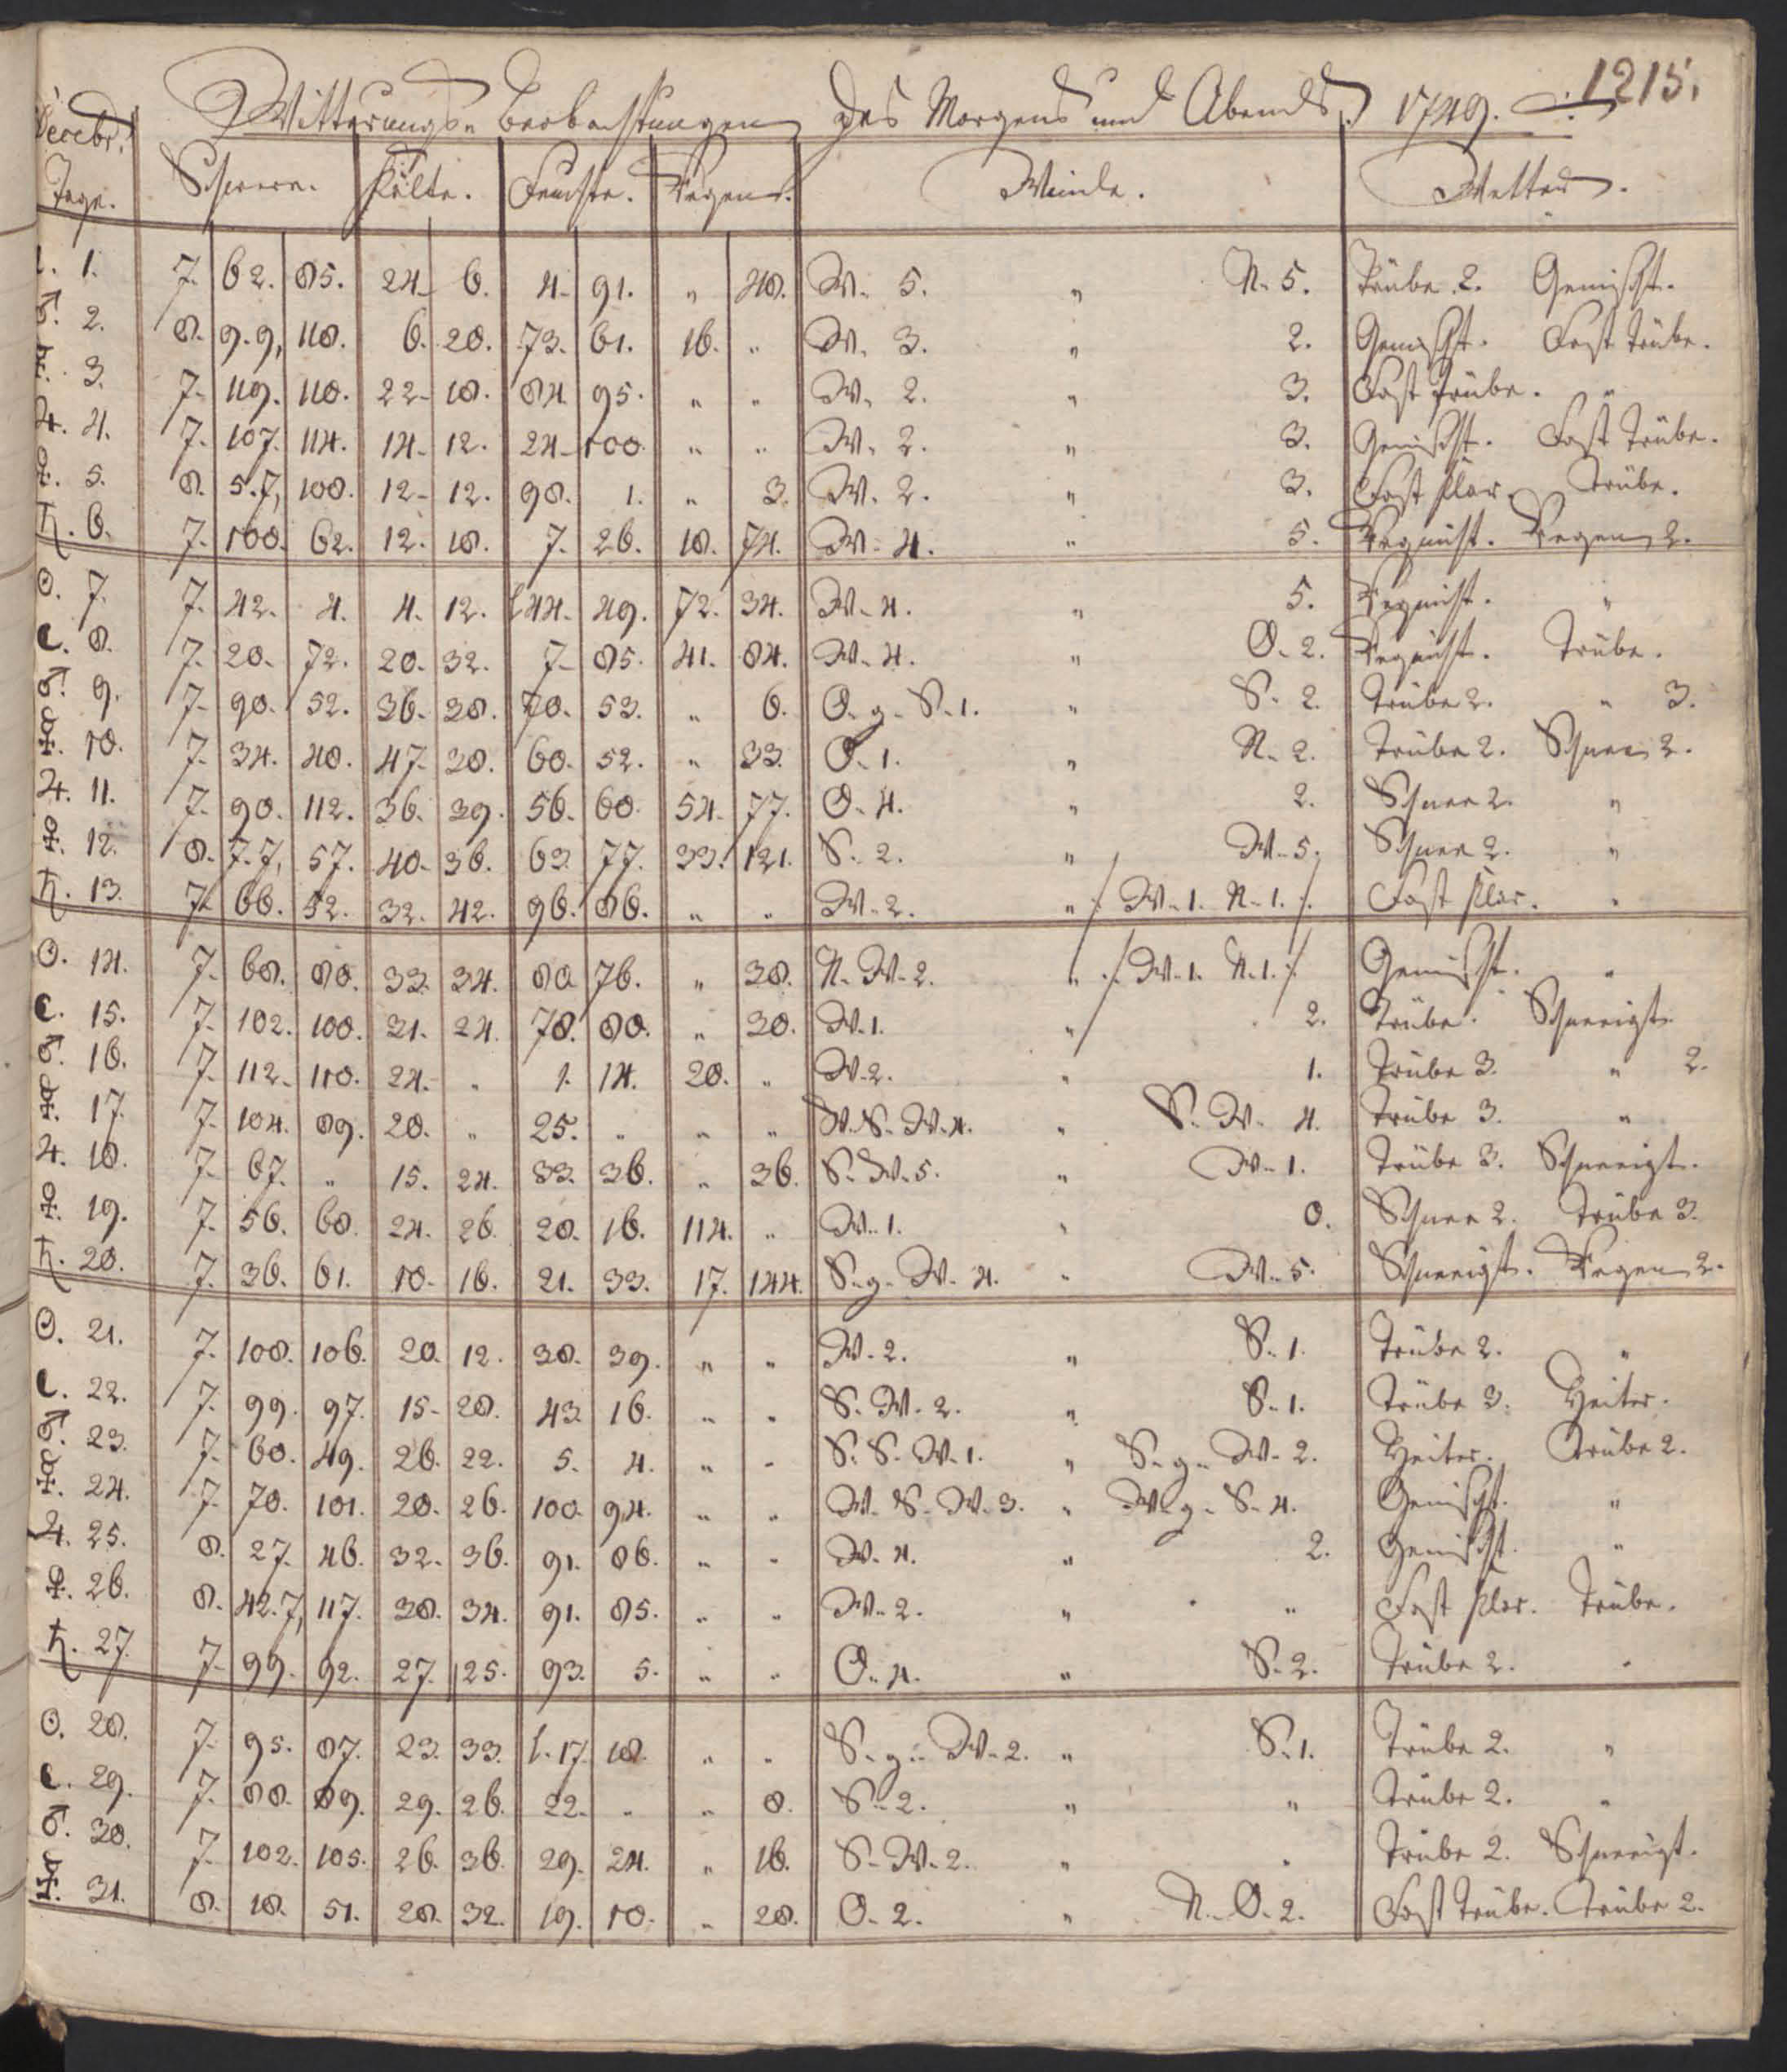 1215.
Decebr. Witterungs- Beobachtungen des Morgens und Abends. 1749.
Tage. Schwere. Kälte. Feuchte. Regen. Winde. Wetter.
☾. 1. 7. 62. 85. 24. 6. 4. 91. " 48. W. 5. " N. 5. Trübe 2. Gemischt.
♂. 2. 8. 9.9, 118. 6. 20. 73. 61. 16. " W. 3. " 2. Gemischt. Fast trübe.
☿. 3. 7. 119. 118. 22. 18. 84. 95. " " W. 2. " 3. Fast trübe. "
♃. 4. 7. 107. 114. 14. 12. 24. 100. " " W. 2. " 3. Gemischt. Fast trübe.
♀. 5. 8. 5.7, 108. 12. 12. 98. 1. " 3. W. 2. " 3. Fast klar. Trübe.
♄. 6. 7. 100. 62. 12. 18. 7. 26. 18. 74. W. 4. " 5. Regnicht. Regen 2.
☉. 7. 7. 42. 4. 4. 12. 144. 49. 72. 34. W. 4. " 5. Regnicht. "
☾. 8. 7. 20. 72. 20. 32. 7. 85. 41. 84. W. 4. " O. 2. Regnicht. Trübe.
♂. 9. 7. 90. 52. 36. 38. 70. 53. " 6. O. g. S. 1. " S. 2. Trübe 2. " 3.
☿. 10. 7. 34. 40. 47. 38. 60. 52. " 33. O. 1. " N. 2. Trübe 2. Schnee 2.
♃. 11. 7. 90. 112. 36. 39. 56. 60. 54. 77. O. 4. " 2. Schnee 2. "
♀. 12. 8. 7.7, 57. 40. 36. 63. 77. 33. 121. S. 2. " W. 5. Schnee 2. "
♄. 13. 7. 66. 52. 32. 42. 96. 86. " " W. 2. " /: W. 1. N. 1. :/ Fast klar. "
☉. 14. 7. 68. 80. 33. 34. 80. 76. " 38. N. W. 2. " /: W. 1. N. 1. :/ Gemischt. "
☾. 15. 7. 102. 100. 31. 24. 78. 80. " 30. W. 1. " 2. Trübe. Schneeigt.
♂. 16. 7. 112. 110. 24. " 1. 14. 20. " W. 2. " 1. Trübe 3. " 2.
☿. 17. 7. 104. 89. 20. " 25. " " " W. S. W. 4. " S. W. 4. Trübe 3. "
♃. 18. 7. 67. " 15. 24. 33. 36. " 36. S. W. 5. " W. 1. Trübe 3. Schneeigt.
♀. 19. 7. 56. 60. 24. 26. 20. 16. 114. " W. 1. " 0. Schnee 2. Trübe 3.
♄. 20. 7. 36. 61. 10. 16. 21. 33. 17. 144. S. g. W. 4. " W. 5. Schneeigt. Regen 2.
☉. 21. 7. 108. 106. 20. 12. 38. 39. " " W. 2. " S. 1. Trübe 2. "
☾. 22. 7. 99. 97. 15. 28. 43. 16. " " S. W. 2. " S. 1. Trübe 3. Heiter.
♂. 23. 7. 60. 49. 26. 22. 5. 4. " " S. S. W. 1. " S. g. W. 2. Heiter. Trübe 2.
☿. 24. 7. 70. 101. 20. 26. 100. 94. " " W. S. W. 3. " W. g. S. 4. Gemischt. "
♃. 25. 8. 27. 46. 32. 36. 91. 86. " " W. 4. " 2. Gemischt. "
♀. 26. 8. 42.7, 117. 38. 34. 91. 85. " " W. 2. " " Fast klar. Trübe.
♄. 27. 7. 99. 92. 27. 25. 93. 5. " " O. 4. " S. 2. Trübe 2. "
☉. 28. 7. 95. 87. 23. 33. 1.17. 18. " " S. g. W. 2. " S. 1. Trübe 2. "
☾. 29. 7. 88. 89. 29. 26. 22. " " 8. S. 2. " " Trübe 2. "
♂. 30. 7. 102. 105. 26. 36. 29. 24. " 16. S. W. 2. " " Trübe 2. Schneeigt.
☿. 31. 8. 18. 51. 28. 32. 19. 10. " 28. O. 2. " N. O. 2. Fast trübe. Trübe 2.